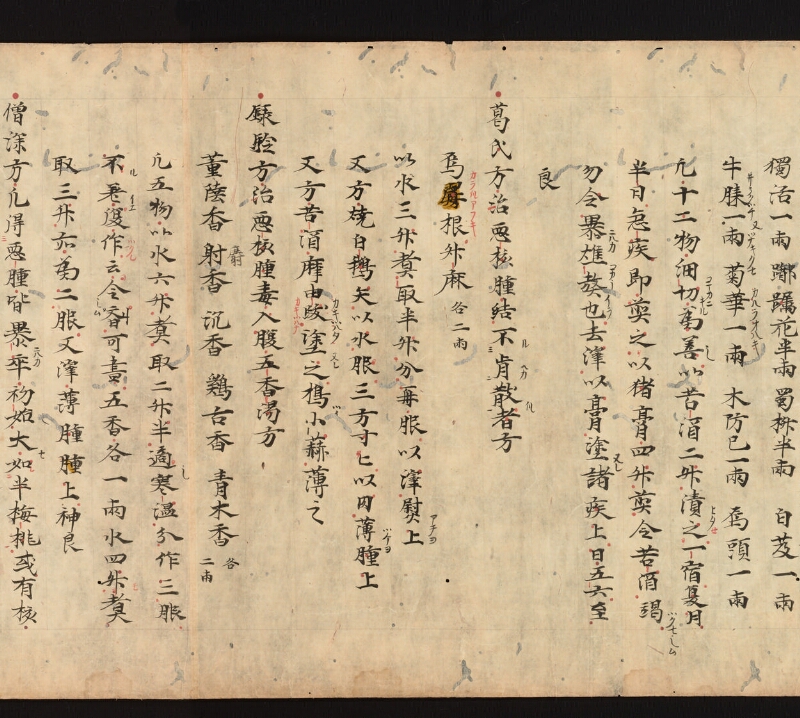 獨活一兩躑躅花半兩蜀椒半兩白芨一兩
牛膝一兩菊華一兩木防已一兩烏頭一兩
凡十二物細切篤善以苦酒二升漬之一宿夏月
半日急疾即煎之以猪膏四升煎令苦酒竭
勿令暴雄熬也去滓以膏塗諸疾上日五六至
良
葛氏方治惡核腫結不肯散者方
烏根升麻各二兩
以水三升煮取半升分再服以滓熨上
又方燒白鵝矢以水服三方寸匕以肉薄腫上
又方苦酒摩由跋塗之搗小蒜薄之
錄驗方治惡核腫毒入腹五香湯方
董陸香 射香 沉香 鷄舌香 青木香 各二兩
凡五物以水六升煮取二升半適寒温分作三服
不差復作云令香可五香各一兩水四升煮
取三升二服又滓薄腫腫上神良
僧深方凡得惡腫皆暴卒初始大如半梅桃或有核